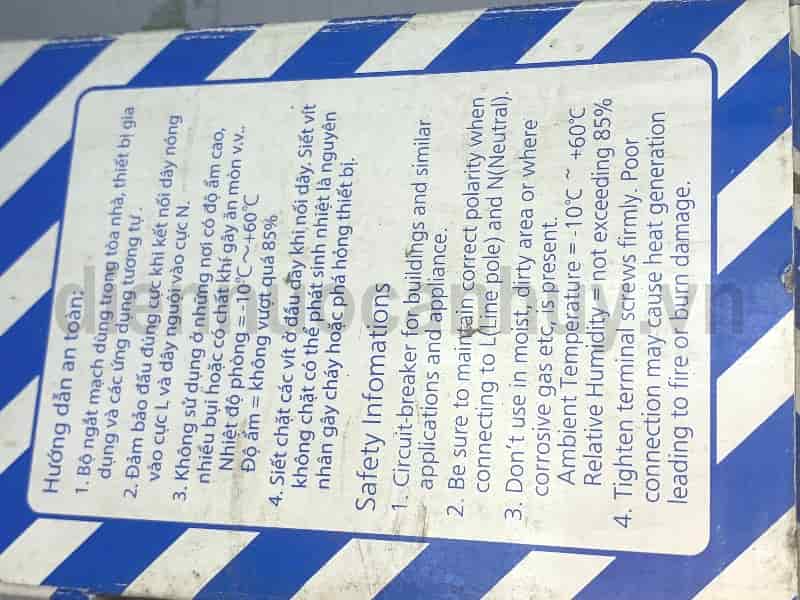 Hướng dẫn an toàn:
1. Bộ ngắt mạch dùng trong tòa nhà, thiết bị gia
dụng và các ứng dụng tương tự .
2. Đảm bảo đấu đúng cực khi kết nối dây nóng
vào cực L và dây nguội vào cực N.
3. Không sử dụng ở những nơi có độ ẩm cao,
nhiều bụi hoặc có chất khí gây ăn mòn v.v..
Nhiệt độ phòng = -10°C ~ +60°C
Độ ẩm = không vượt quá 85%
4. Siết chặt các vít ở đầu dây khi nối dây. Siết vít
không chặt có thể phát sinh nhiệt là nguyên
nhân gây cháy hoặc phá hỏng thiết bị.
Safety Infomations
1. Circuit-breaker for buildings and similar
applications and appliance.
2. Be sure to maintain correct polarity when
connecting to L(Line pole) and N(Neutral).
3. Don't use in moist, dirty area or where
corrosive gas etc, is present.
Ambient Temperature = -10°C ~ +60°C
Relative Humidity = not exceeding 85%
4. Tighten terminal screws firmly. Poor
connection may cause heat generation
leading to fire or burn damage.
diennuocanhuy.vn